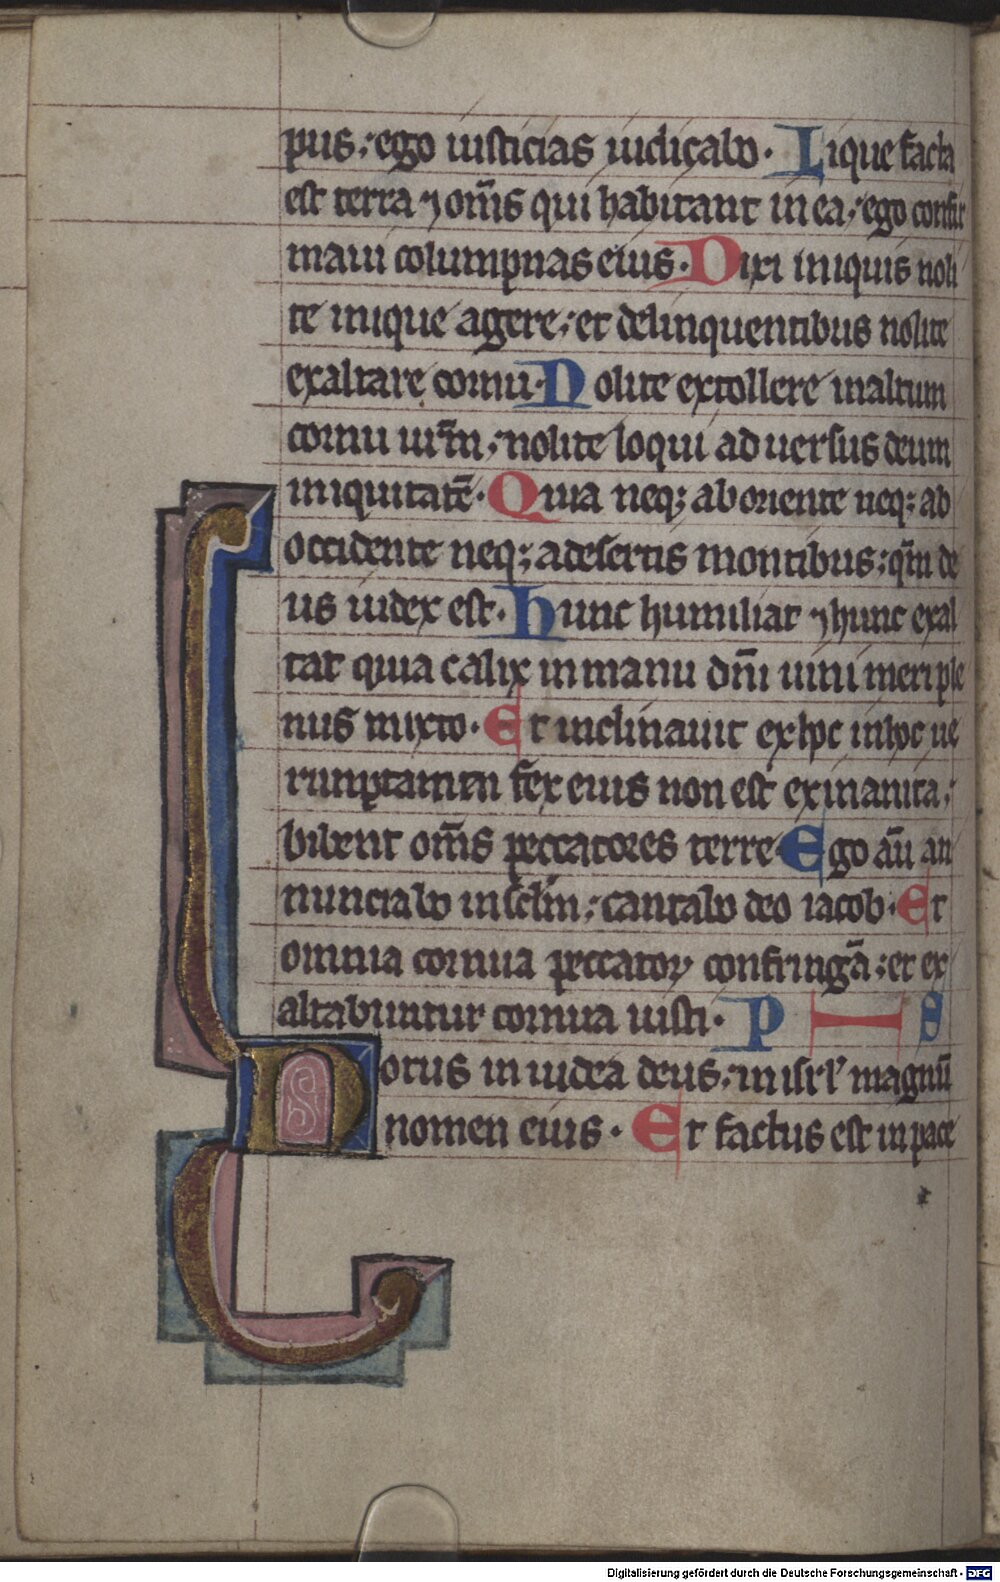 pus: ego iusticias iudicabo. Lique facta
est terra ⁊ om̅s qui habitant in ea: ego confir
maui columpnas eius. Dixi iniquis noli
te inique agere: et delinquentibus nolite
exaltare cornu. Nolite extollere inaltum
cornu ur̅m: nolite loqui aduersus deum
iniquitate̅. Quia neq; ab oriente neq; ab
occidente neq; adesertis montibus: qm̅ de
us iudex est. Hunc humiliat ⁊ hunc exal
tat quia calix inmanu dn̅i uini meri ple
nus mixto. Et inclinauit ex hoc inhoc ue
rumptamen fex eius non est exinanita:
bibent om̅s peccatores terre Ego au̅ an
nunciabo insclm̅: cantabo deo iacob. Et
omnia cornua peccatoꝝ confringa̅: et ex
altabuntur cornua iusti. P S
Notus in iudea deus: in isrl̕ magnu̅
nomen eius. Et factus est in pace
Digitalisierung gefördert durch die Deutsche Forschungsgemeinschaft - DFG